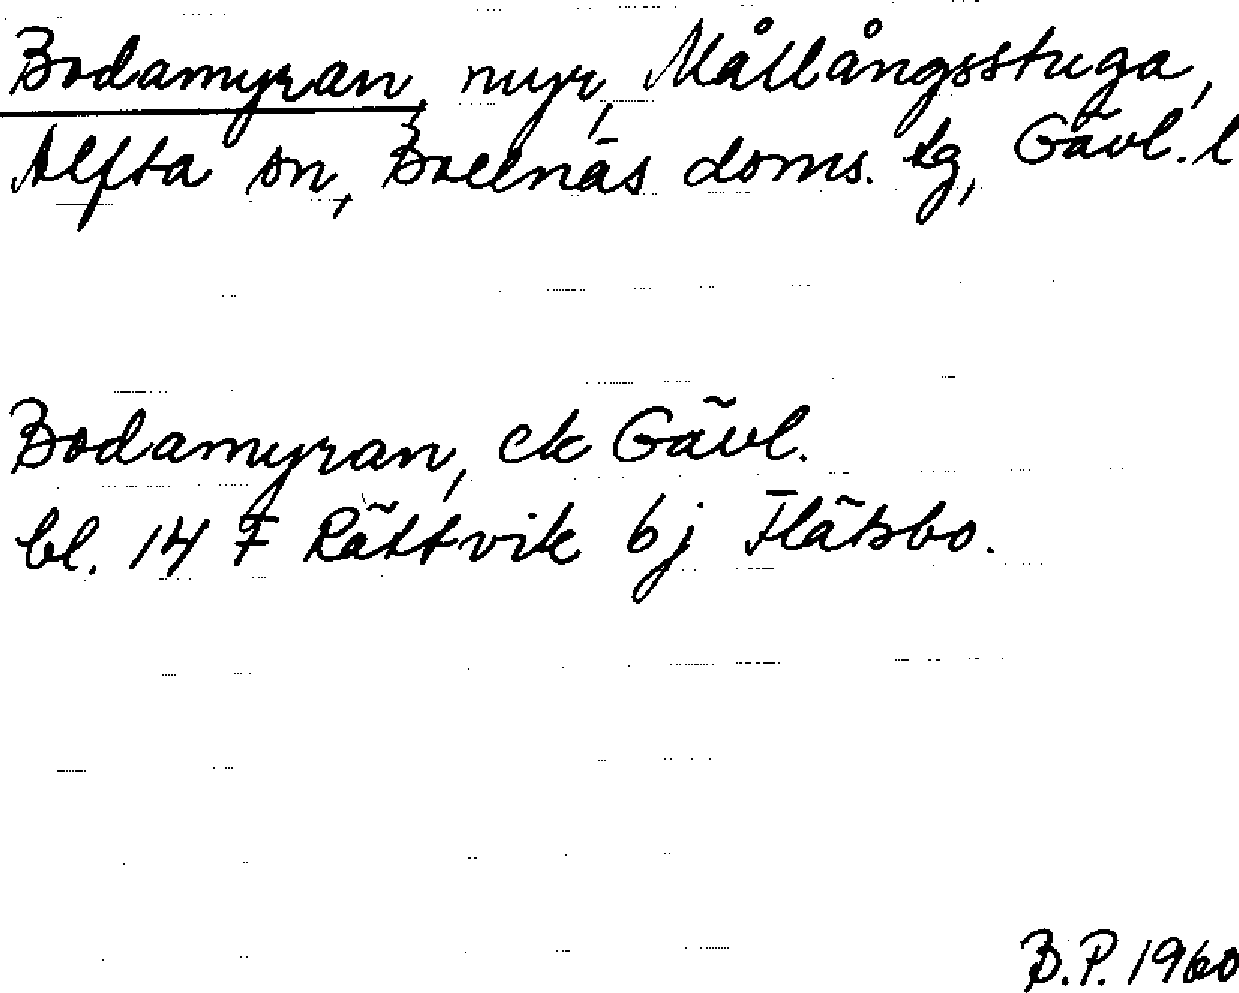 Bodamyran, myr, Mållångsstuga,
Alfta sn, Bollnäs doms. tg, Gävl. l
Bodamyran, ek Gävl.
bl. 14 F Rättvik bj Flätsbo.
B.P. 1960